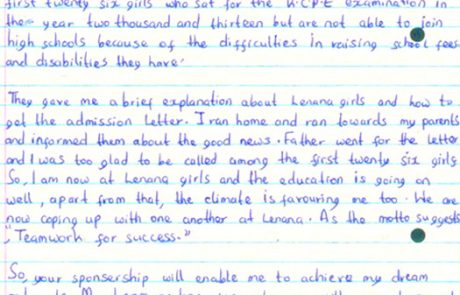 first twenty six girls who sat for the K.C.P.E examination in
the year two thousand and thirteen but are not able to join
high schools because of the difficulties in raising school fees
and disabilities they have.
They gave me a brief explanation about Lenana girls and how to
get the admission letter. I ran home and ran towards my parents
and informed them about the good news. Father went for the letter
and I was too glad to be called among the first twenty six girls
So, I am now at Lenana girls and the education is going on
well, apart from that, the climate is favouring me too. We are
now coping up with one another at Lenana. As the motto suggests
"Teamwork for success."
So, your sponsership will enable me to achieve my dream